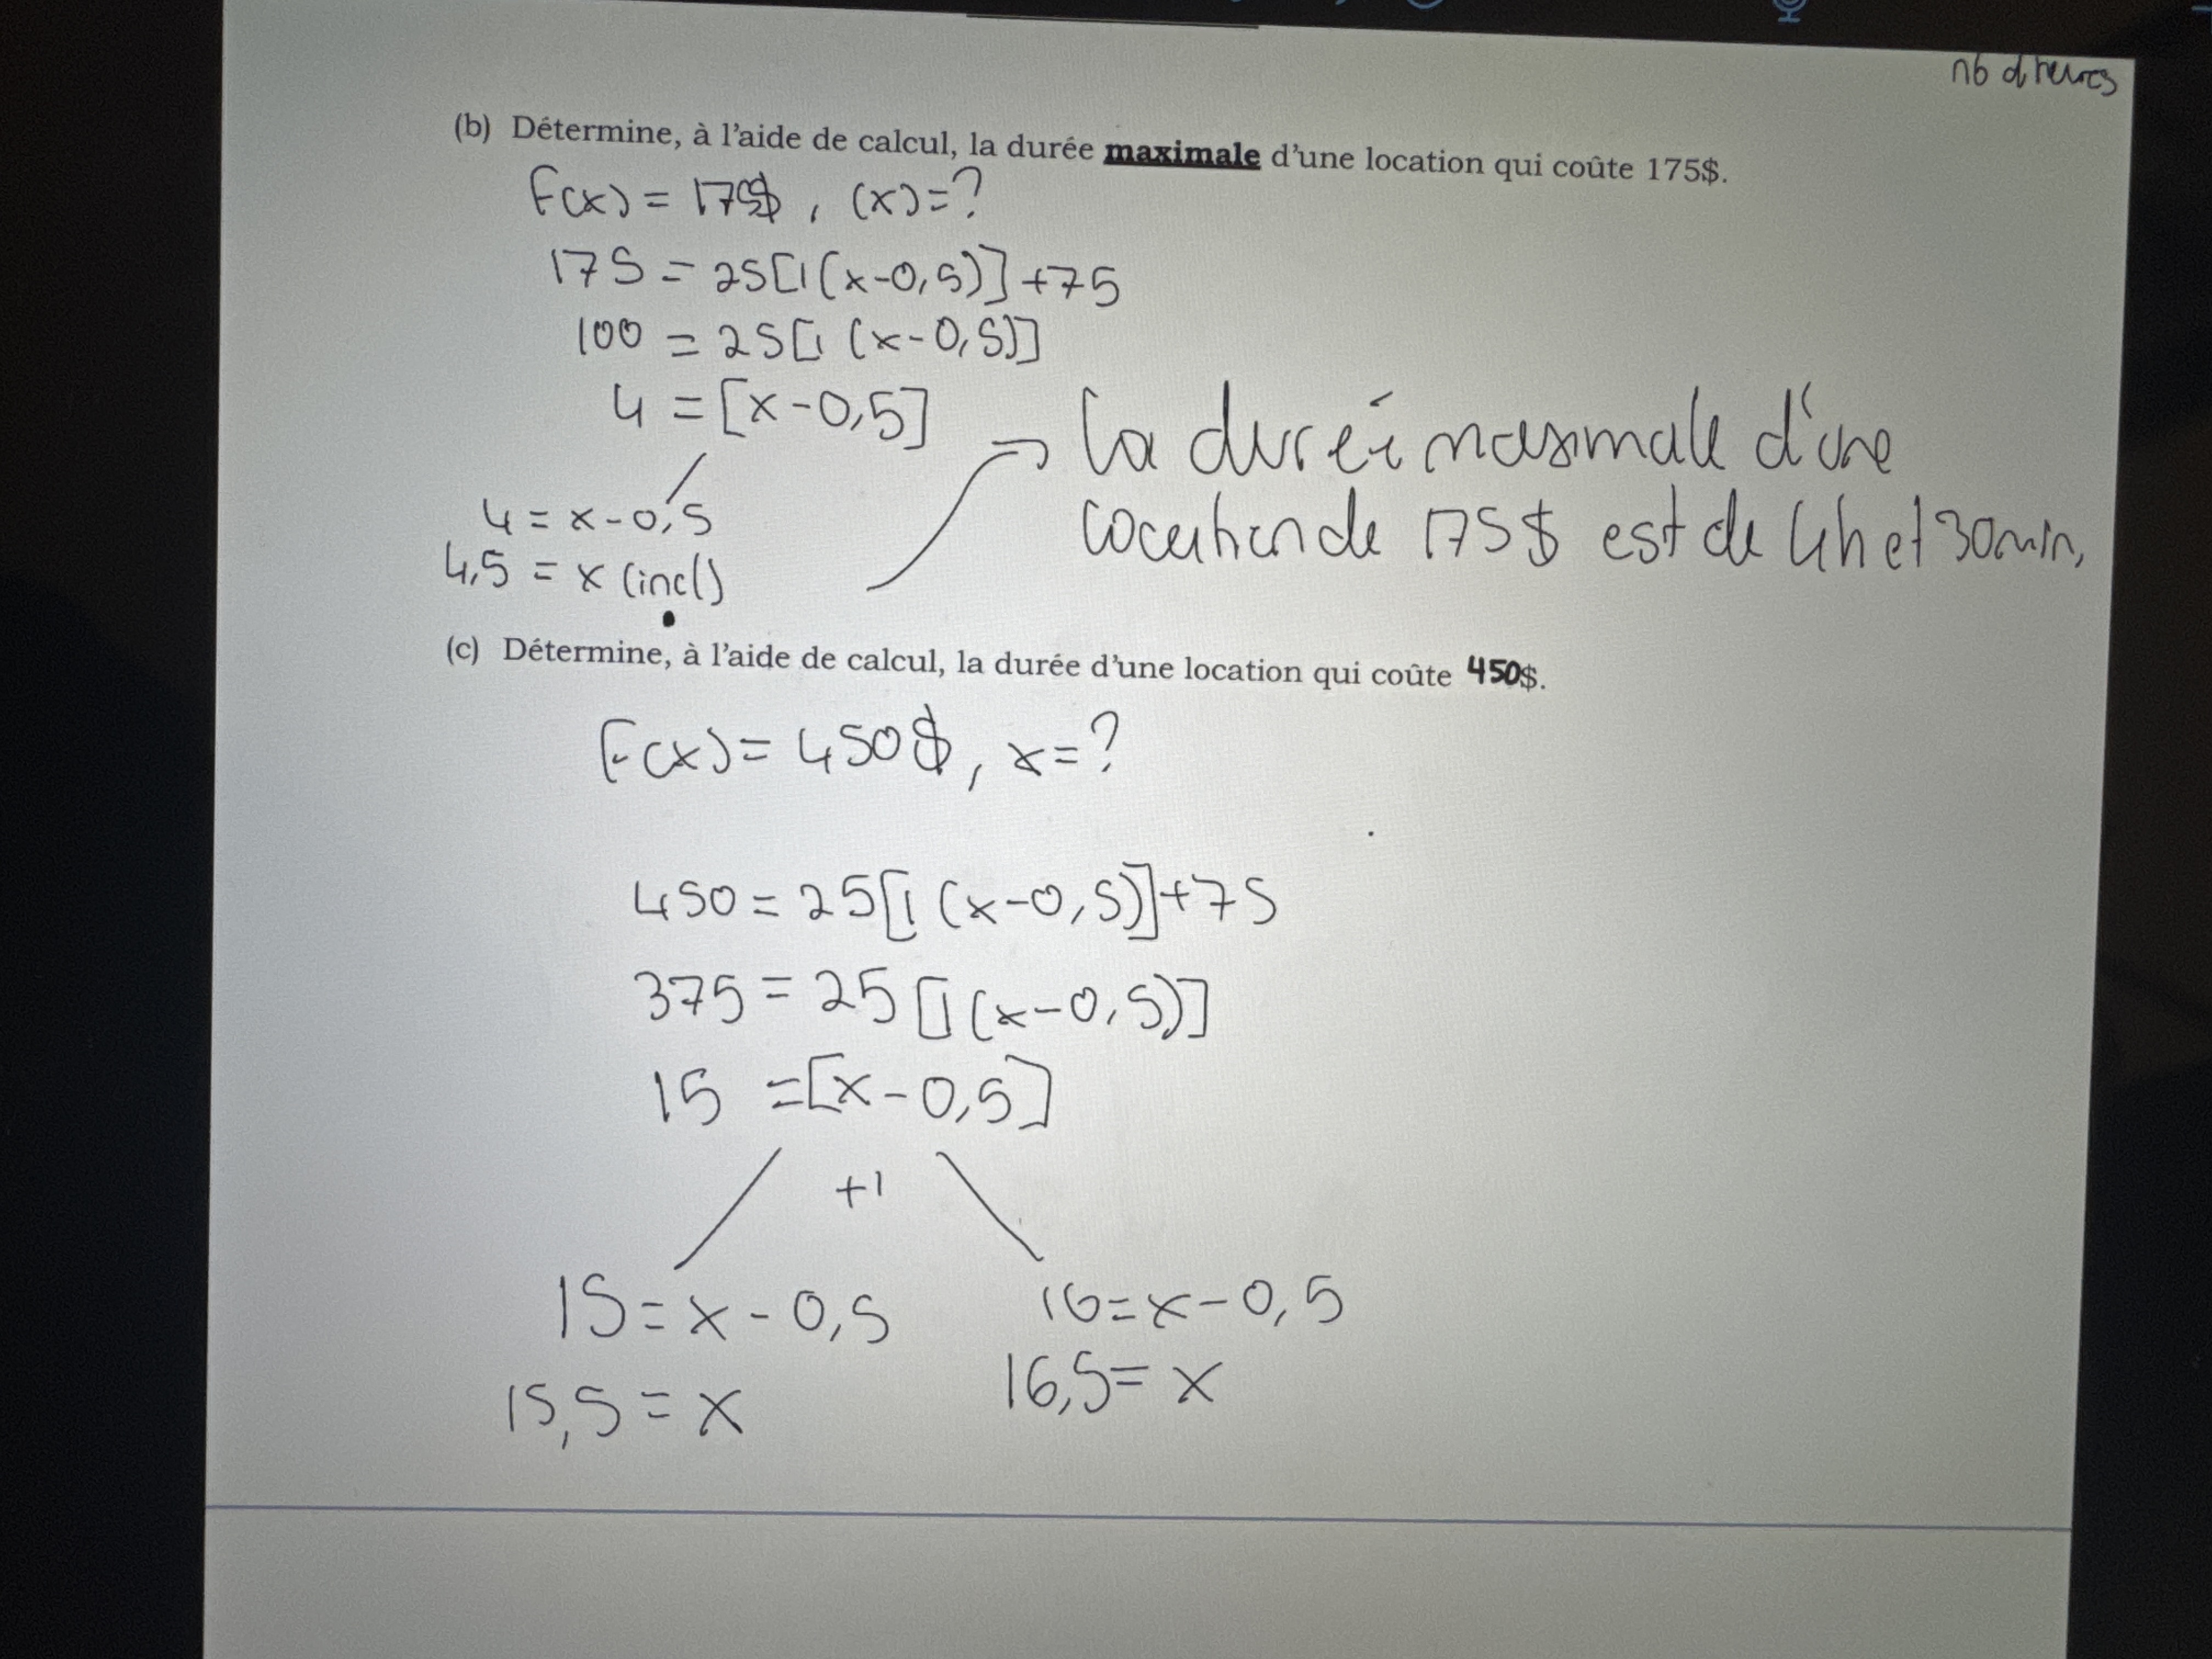 nb d'heures
(b) Détermine, à l'aide de calcul, la durée maximale d'une location qui coûte 175$.
F(x) = 175$, (x)=?
175 = 25[1(x-0,5)]+75
100 = 25[1(x-0,5)]
4 = [x-0,5]
4 = x-0,5
4,5 = x (incl)
→ La durée maximale d'une
location de 175$ est de 4h et 30min.
(c) Détermine, à l'aide de calcul, la durée d'une location qui coûte 450$.
F(x)= 450$, x=?
450=25[1(x-0,5)]+75
375=25[1(x-0,5)]
15 =[x-0,5]
+1
15=x-0,5 16=x-0,5
15,5=x 16,5=x